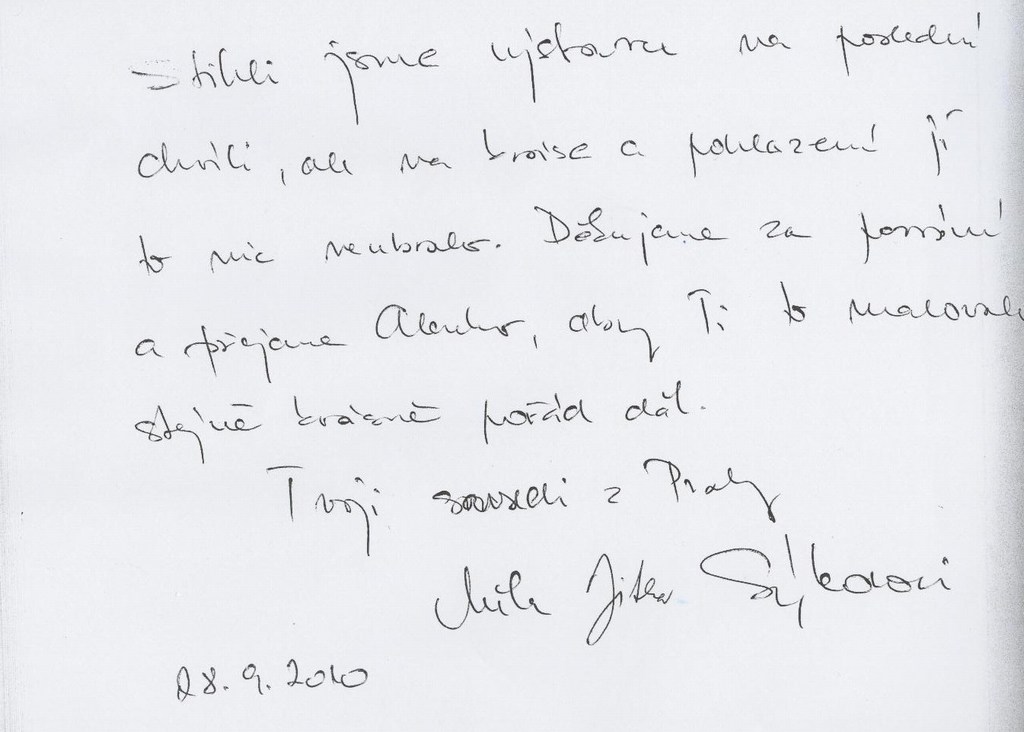 Stihli jsme výstavu na poslední
chvíli, ale na kráse a pohlazení jí
to nic neubralo. Děkujeme za pozvání
a přejeme Alenko, aby Ti to malovalo
stejně krásně pořád dál.
Tvoji sousedi z Prahy
Jitka Sýkorovi
28.9.2010